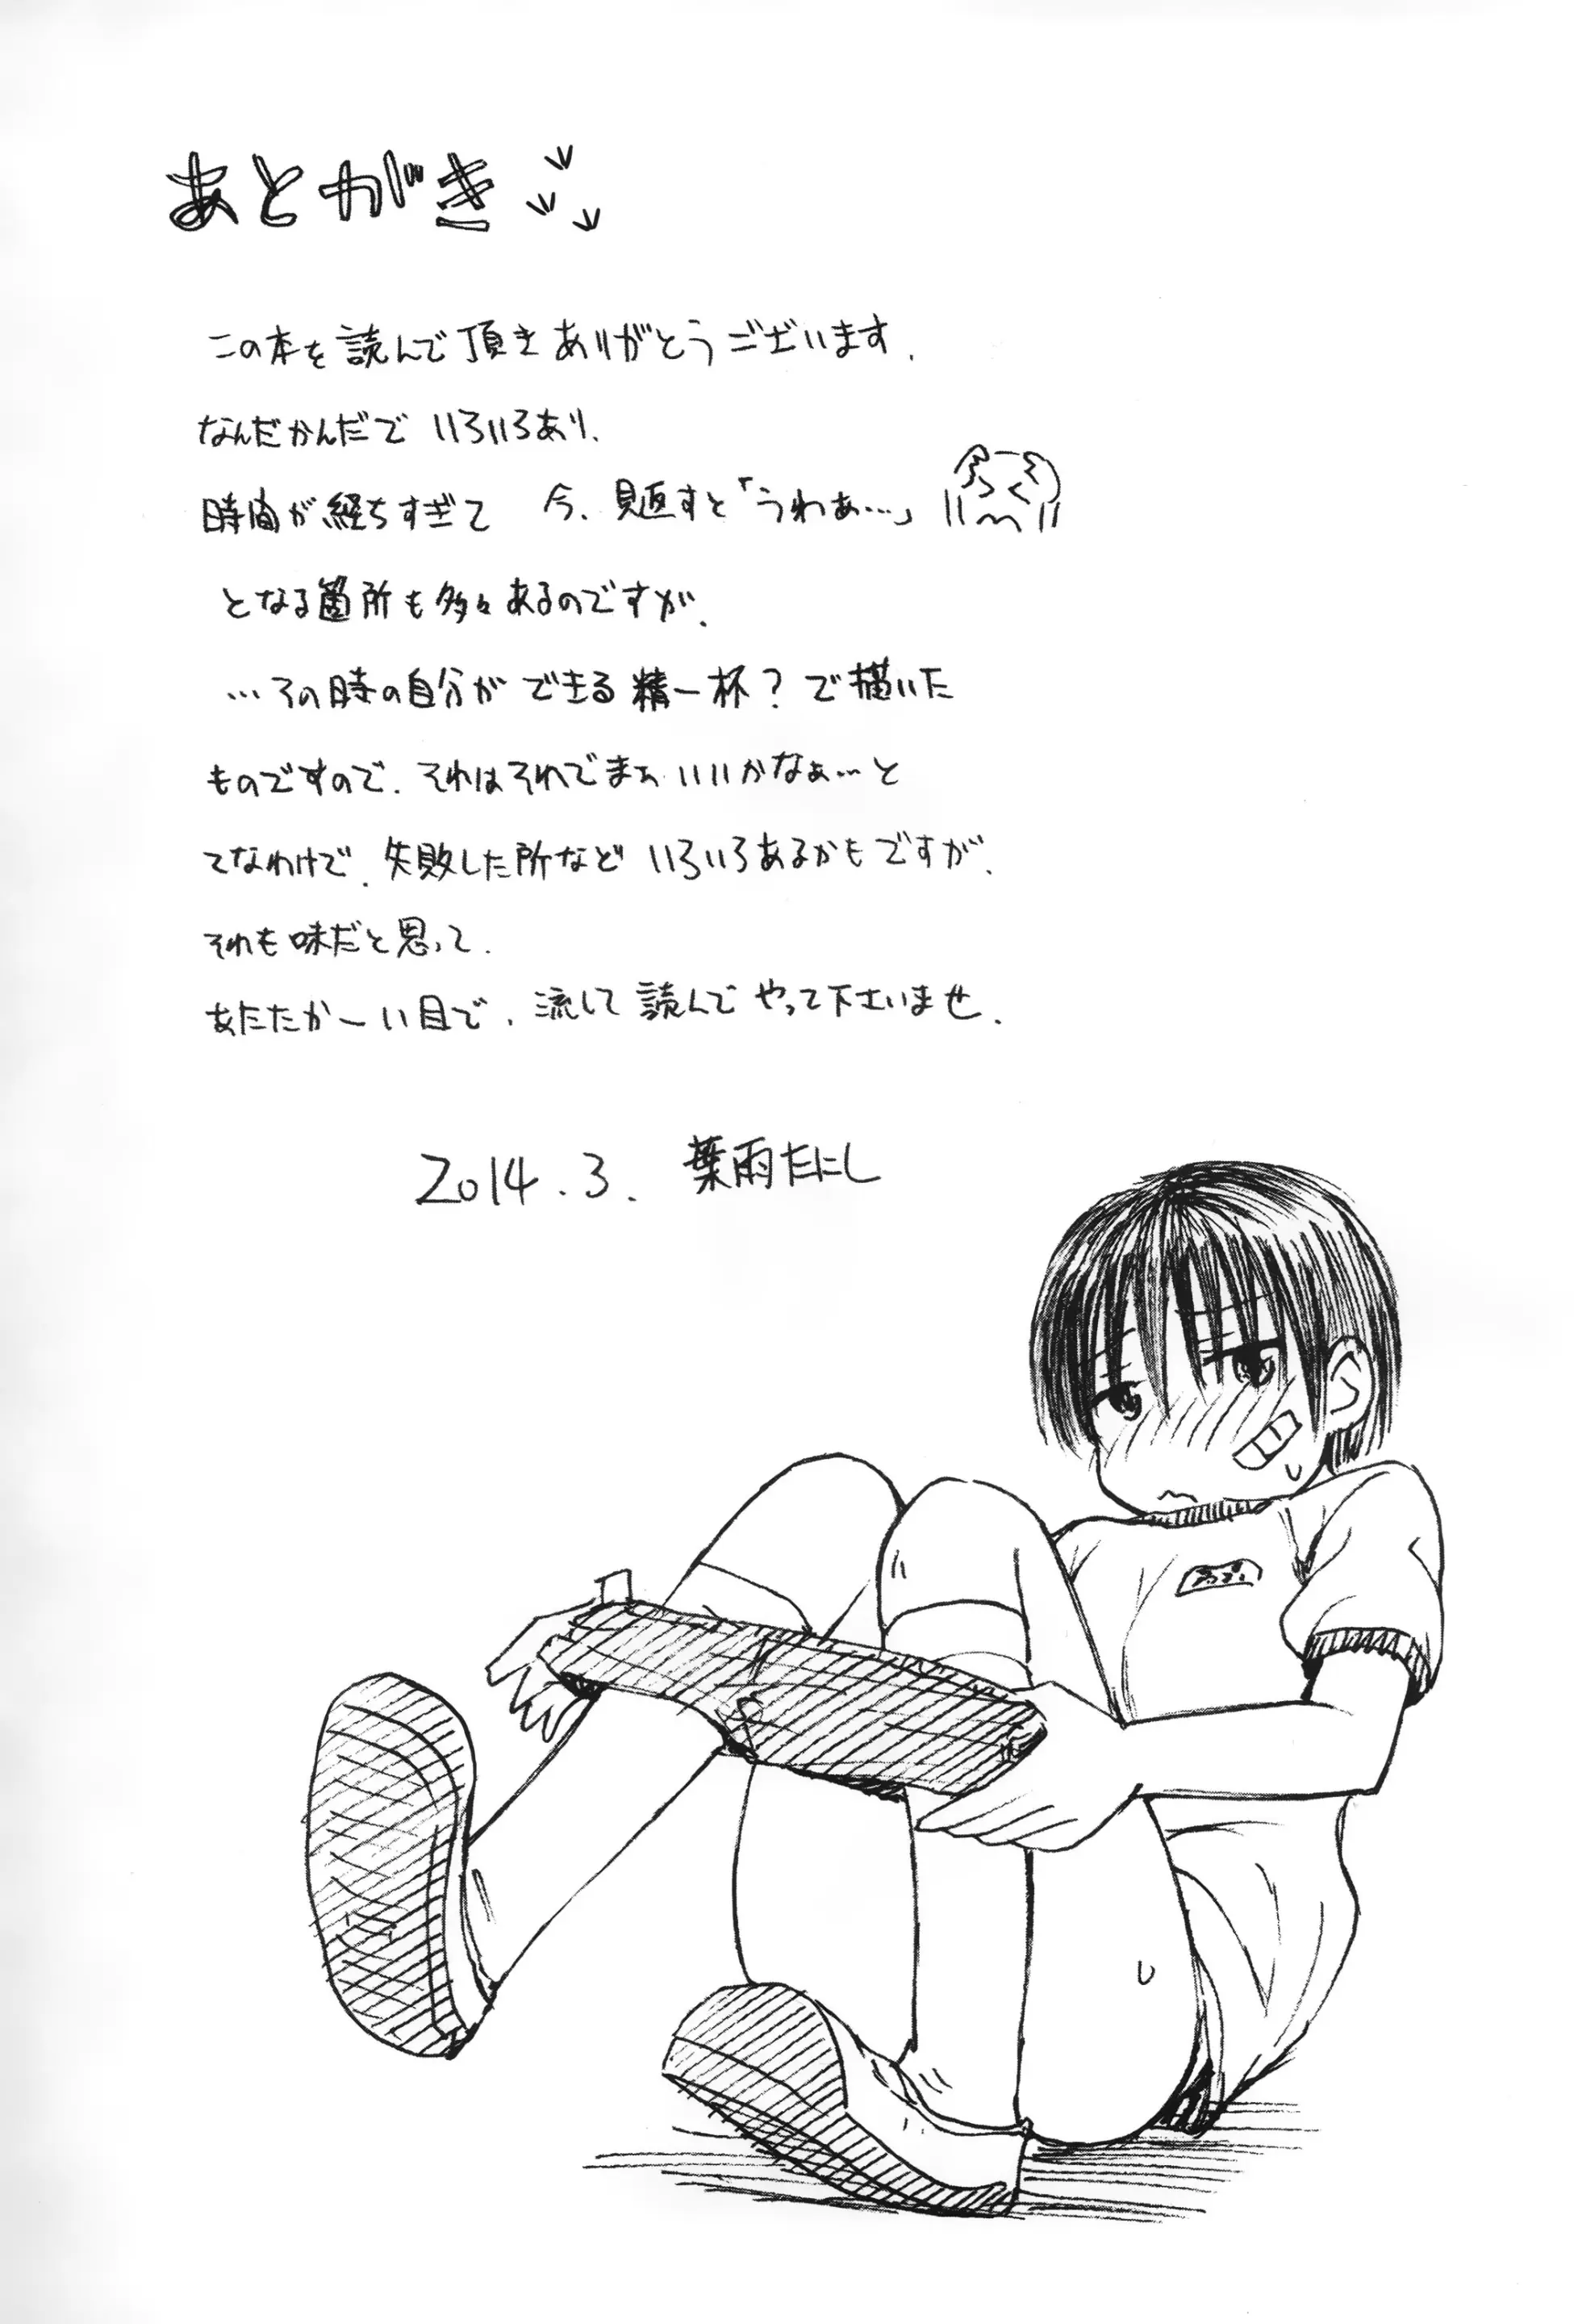 あとがき
この本を読んで頂きありがとうございます.
なんだかんだで いろいろあり、
時間が経ちすぎて 今、見返すと「うわぁ…」
となる箇所も多々あるのですが、
…その時の自分ができる精一杯?で描いた
ものですので、それはそれでまぁいいかなぁ…と
てなわけで、失敗した所など いろいろあるかもですが、
それも味だと思って、
あたたかーい目で、流して読んでやって下さいませ.
2014.3. 葉雨たにし